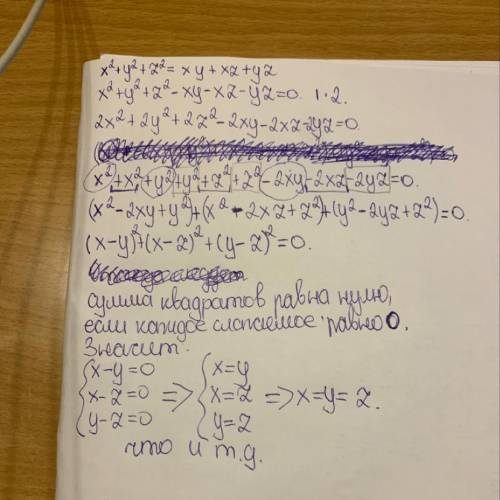 x²+y²+z²= xy+xz+yz
x²+y²+z²-xy-xz-yz=0. | · 2.
2x²+2y²+2z²-2xy-2xz-2yz=0.
x²+x²+y²+y²+z²+z²-2xy-2xz-2yz=0.
(x²-2xy+y²)+(x²-2xz+z²)+(y²-2yz+z²)=0.
(x-y)²+(x-z)²+(y-z)²=0.
сумма квадратов равна нулю,
если каждое слагаемое равно 0.
Значит:
{x-y=0 {x=y
x-z=0 => x=z => x=y=z.
y-z=0 y=z
что и т.д.